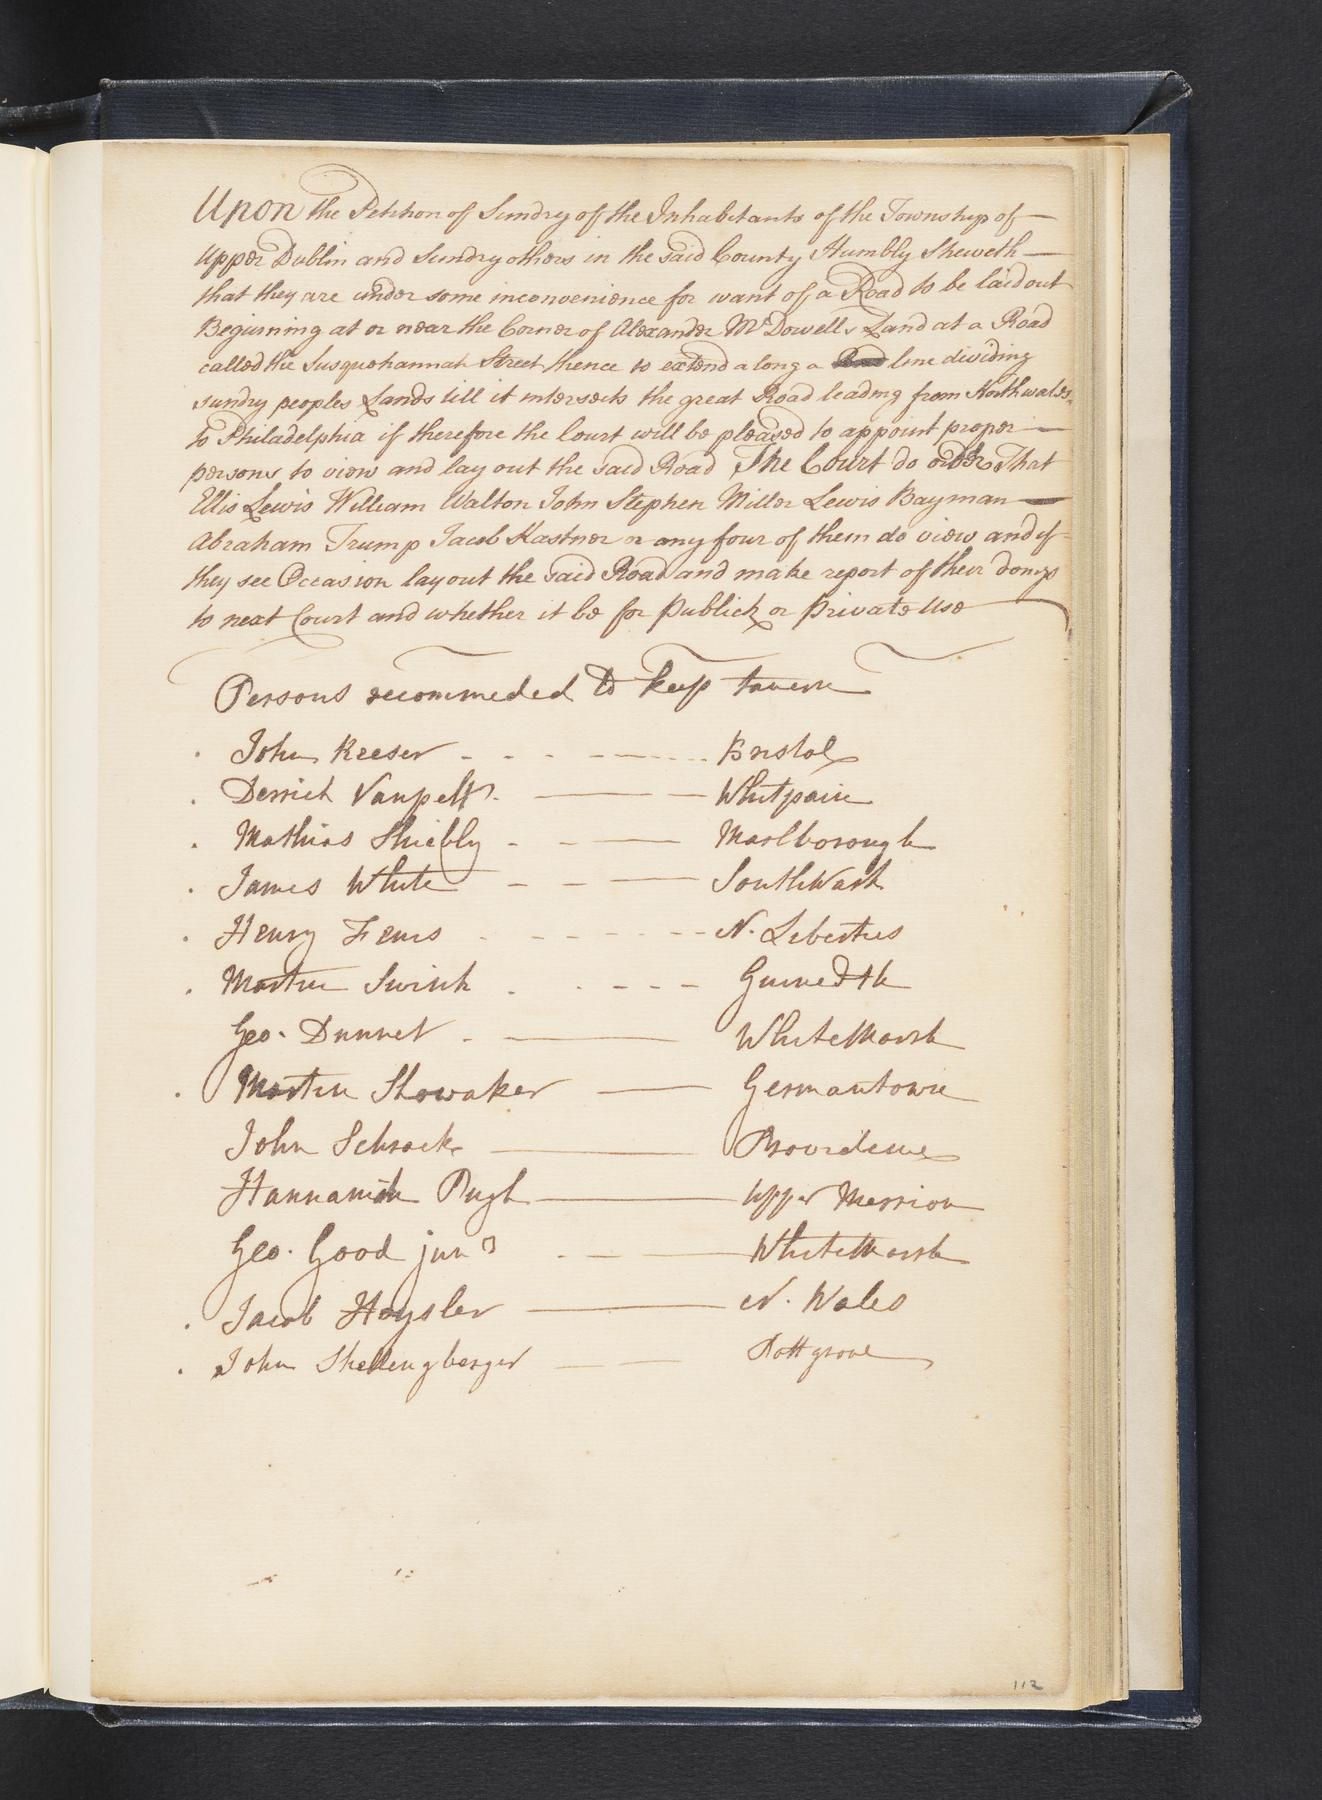 Upon the Petition of Sundry of the Inhabitants of the Township of
Upper Dublin and Sundry others in the said County Humbly Sheweth
that they are under some inconvenience for want of a Road to be laid out
Beginning at or near the Corner of Alexander McDowells Land at a Road
called the Susquehannah Street thence to extend along a line dividing
sundry peoples Lands till it intersects the great Road leading from Northwales
to Philadelphia if therefore the Court will be pleased to appoint proper
persons to view and lay out the said Road The Court do order That
Ellis Lewis William Walton John Stephen Miller Lewis Bayman
Abraham Trump Jacob Kastner or any four of them do view and if
they see Occasion lay out the said Road and make report of their doings
to next Court and whether it be for Publick or Private Use
Persons recommeded to keep tavern
John Keeser Bristol
Derrick Vanpelt Whitpain
Mathias Shiebly Marlborough
James White SouthWark
Henry N. Liberties
Martin Swink Gwinedth
Geo. Dunnet WhiteMarsh
Martin Showaker Germantown
John Schrack Providence
Hannaniah Pugh Upper Merrion
Geo. Good junr WhiteMarsh
Jacob Hoysler N. Wales
John Shellengberger Pottgrove
112